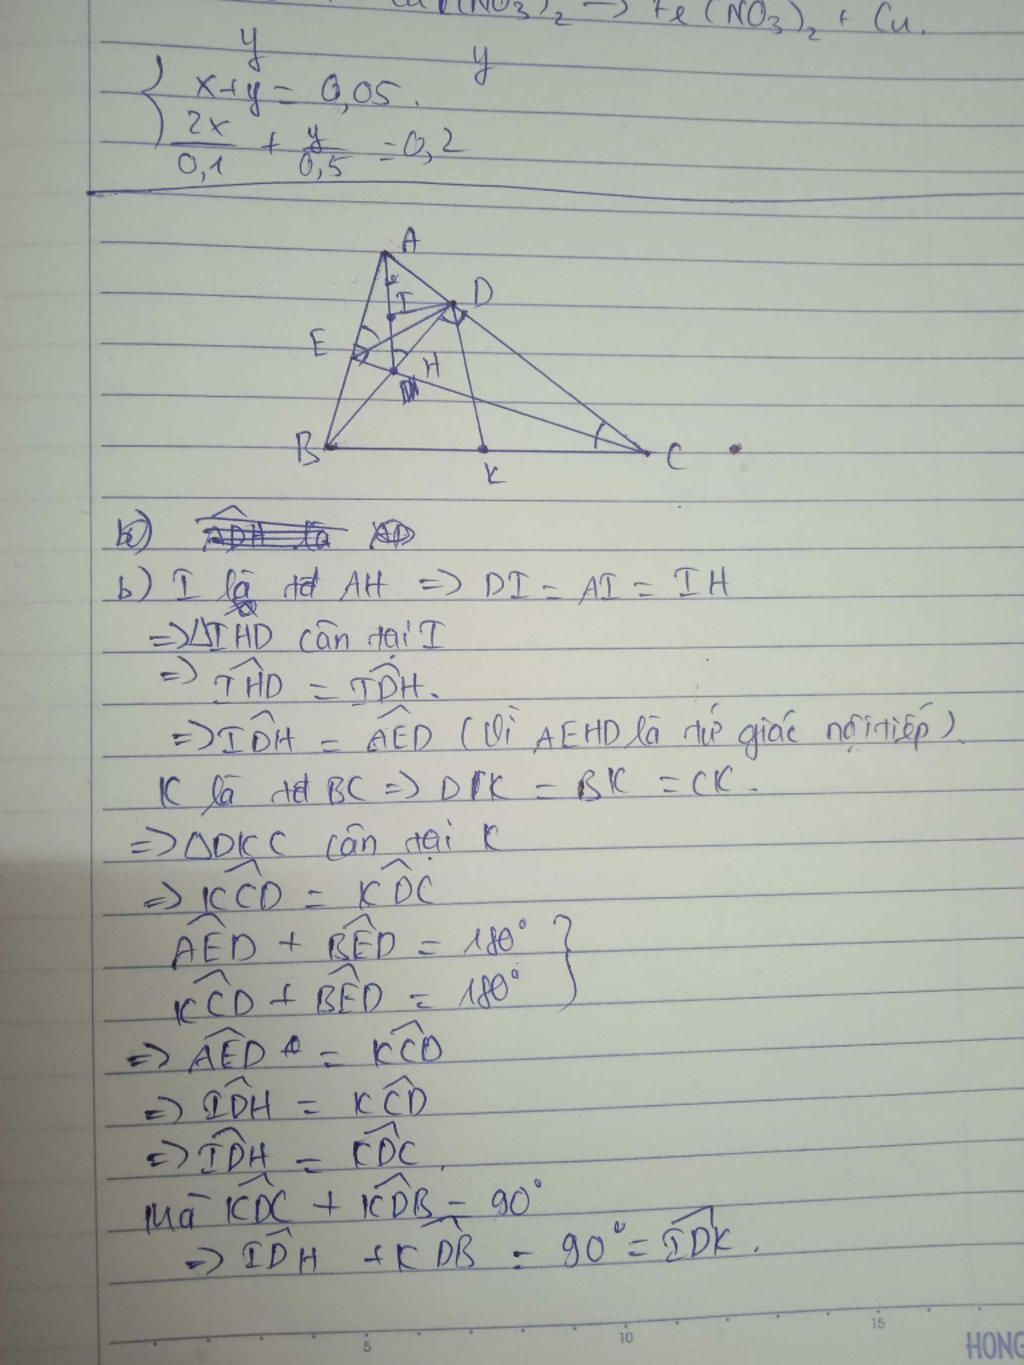 (NO₃)₂ → Fe(NO₃)₂ + Cu.
y y
x+y = 0,05.
2x/0,1 + y/0,5 = 0,2
A
I D
E
H
B K C
b)
b) I là tđ AH => DI = AI = IH
=> ΔIHD cân tại I
=> IHD = IDH.
=> IDH = AED (Vì AEHD là tứ giác nội tiếp)
K là tđ BC => DK = BK = CK.
=> ΔDKC cân tại K
=> KCD = KDC
AED + BED = 180°
KCD + BED = 180°
=> AED = KCD
=> IDH = KCD
=> IDH = KDC.
Mà KDC + KDB = 90°
=> IDH + KDB = 90° = IDK.
5 10 15 HONG